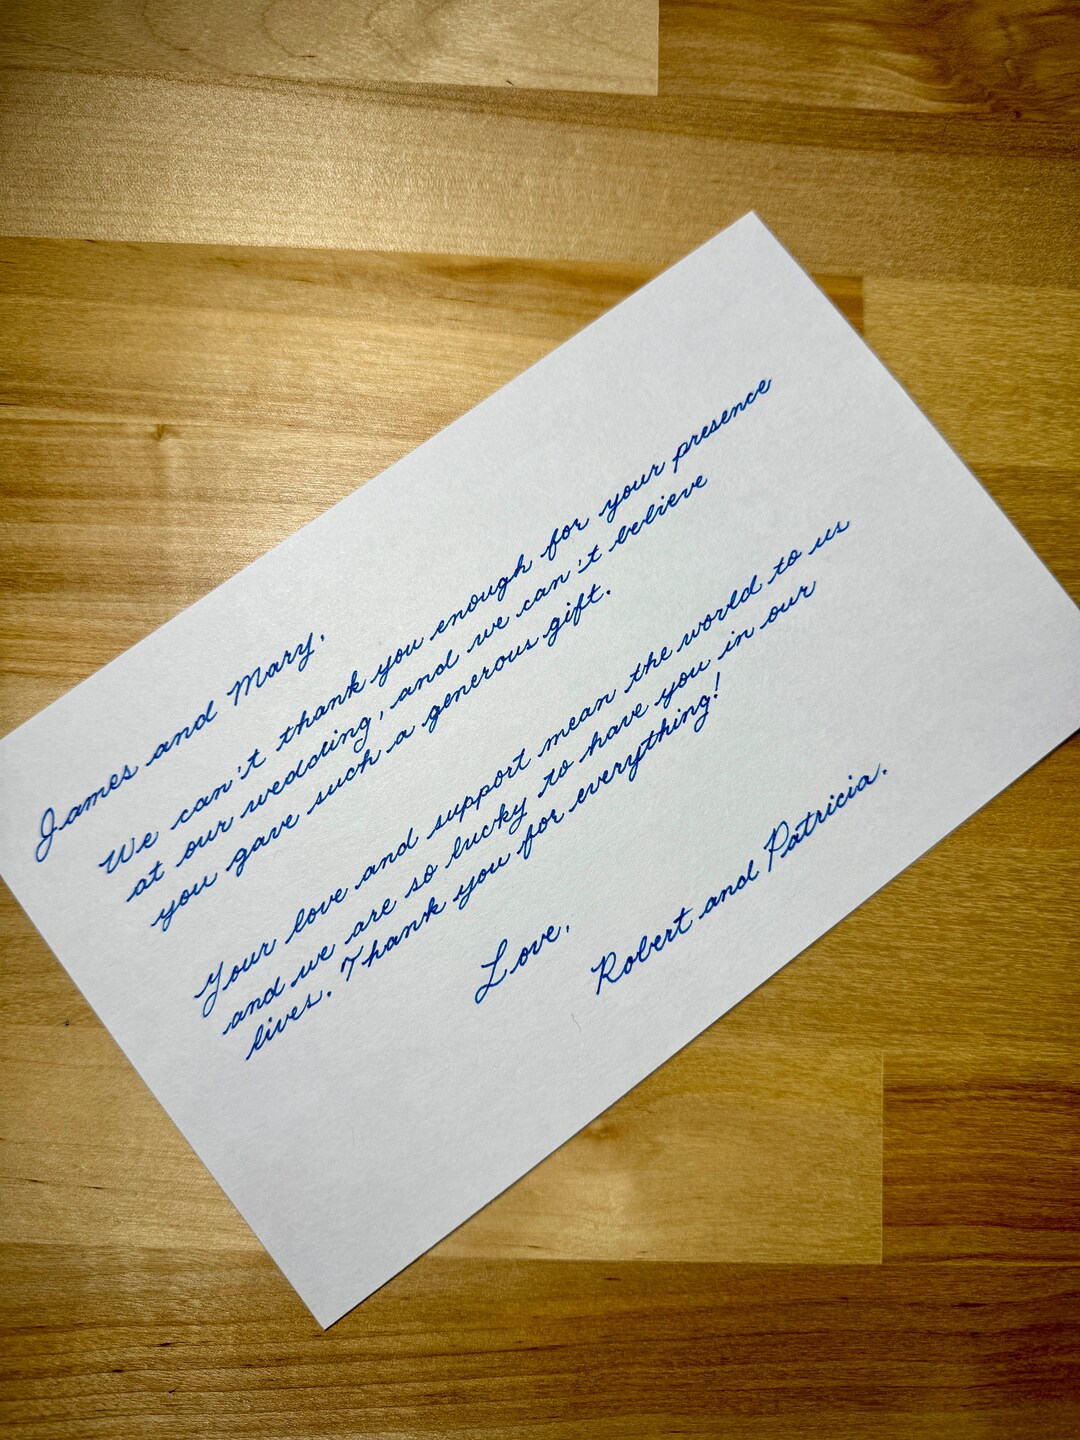 James and Mary,
We can't thank you enough for your presence
at our wedding, and we can't believe
you gave such a generous gift.
Your love and support mean the world to us
and we are so lucky to have you in our
lives. Thank you for everything!
Love,
Robert and Patricia.